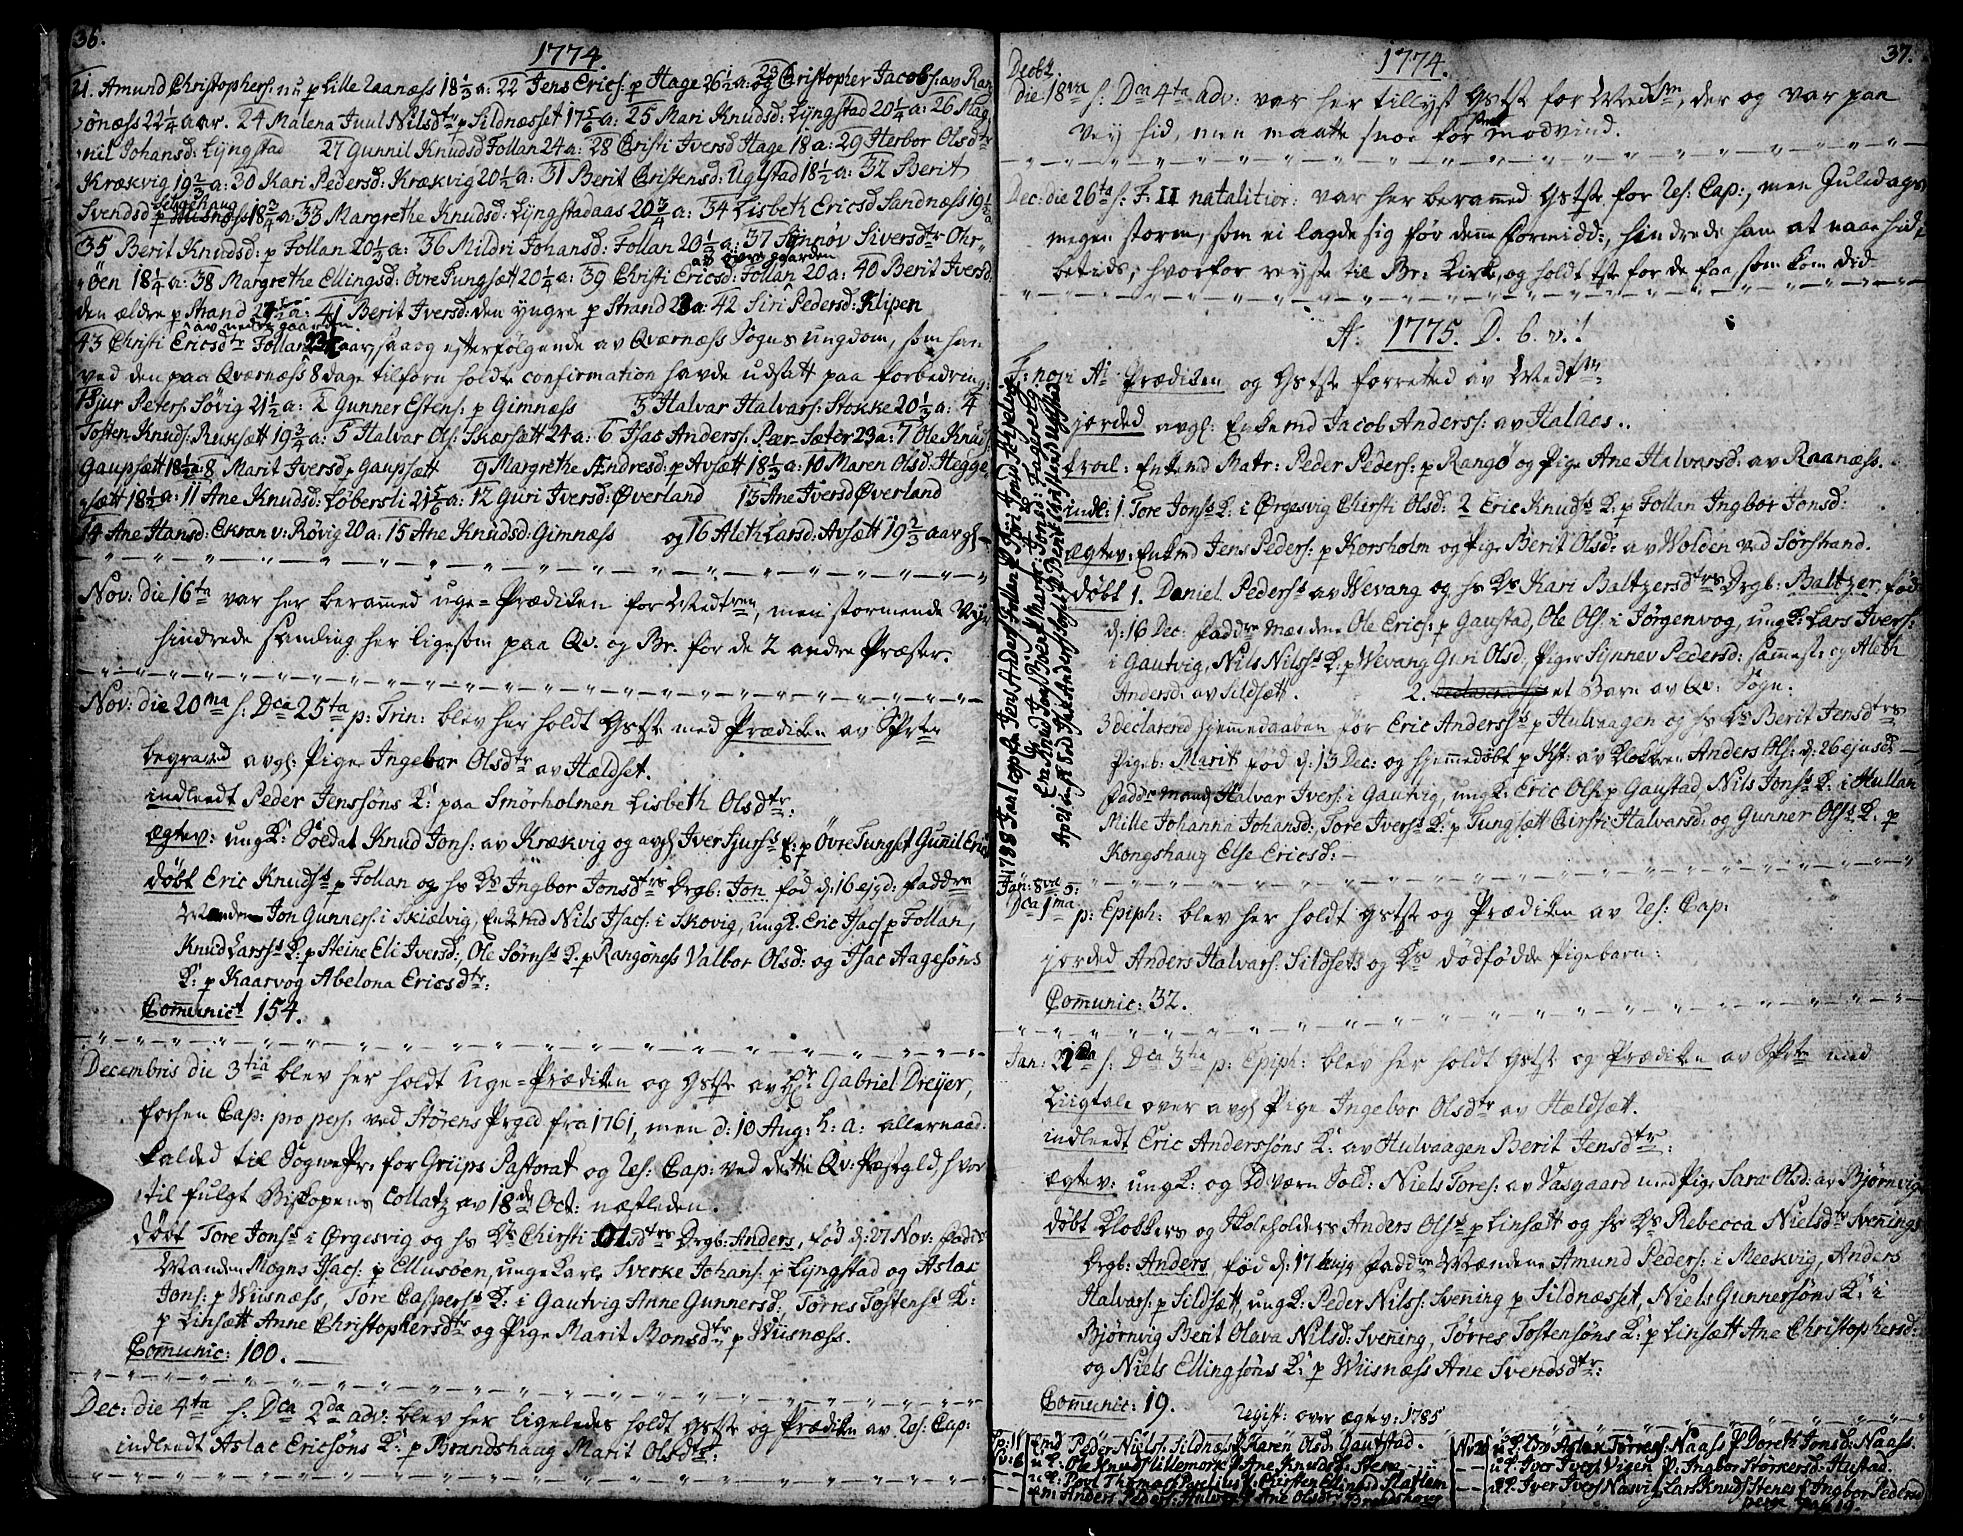 36.
1774.
21. Amund Christophers: nu p Lille Raanæss 18 1/3 a: 22 Jens Erics: p Hage 26 1/2 a: og 23 Christopher Jacobs: av Ran
önæss 22 1/4 aar. 24 Malena Juul Nilsdtr p Sildnæsset 17 5/6 a: 25 Mari Knudsd: Lyngstad 20 1/4 a: 26 Mag
nil Johansd: Lyngstad 27 Gunnil Knudsd Follan 24 a: 28 Christi Iversd Hage 18 a: 29 Herbor Olsdtr
Krækvig 19 2/3 a: 30 Kari Pedersd: Krækvig 20 1/2 a: 31 Berit Christensd: Ugelstad 18 1/2 a: 32 Berit
Svendsd 18 3/4 a: 33 Margrethe Knudsd: Lyngstadaas 20 3/4 a: 34 Lisbeth Ericsd Sandnæss 19
35 Berit Knudsd: p Follan 20 1/3 a: 36 Mildri Johansd: Follan 20 1/3 a: 37 Synnøv Siversdtr Ohr-
öen 18 1/4 a: 38 Margrethe Ellingsd: Övre Tungsætt 20 1/4 a: 39 Christi Ericsd: Follan av övre gaarden 20 a: 40 Berit Iversd:
den ældre p Strand a: 41 Berit Iversd: den yngre p Strand a: 42 Siri Pedersd: Klipen
43 Christi Ericsdtr Follan av nedre gaarden aar, saa og efterfølgende av Qværnæss Sogns ungdom, som han
ved den paa Qværnæss 8 dage tilforn holdte confirmation havde udsatt paa forbedring:
Siur Peters: Søvig 21 1/2 a: 2 Gunner Estens: p Gimnæss 3 Halvar Halvars: Stokke 20 1/3 a: 4
Tosten Knuds: Ruksætt 19 3/4 a: 5 Halvar Ols: Skarsætt 24 a: 6 Isac Anders: Pær Sæter 23 a: 7 Ole Knuds
Gaupsætt 18 1/2 a: 8 Marit Iversd p Gaupsætt 9 Margrethe Andresd: p Avsætt 18 1/2 a: 10 Maren Olsd: Hegge
sætt 18 1/2 a: 11 Ane Knudsd: Løbersli 21 5/6 a: 12 Guri Iversd: Øverland 13 Ane Iversd Øverland
14 Ane Hansd: Ekran v: Røvig 20 a: 15 Ane Knudsd: Gimnæss og 16 Aleth Larsd: Avsætt 19 2/3 aar gl
Nov: die 16ta var her berammed uge-Prædiken for Medtren, men stormende Vejr
hindrede samling her ligesom paa Qv. og Br. for de 2 andre Præster.
Nov: die 20ma s: Dca 25ta p: Trin: blev her holdt Gstste med Prædiken av
begraved avgl: Pige Ingebor Olsdtr av Hældset.
indleedt Peder Jenssöns K: paa Smörholmen Lisbeth Olsdtr:
ægtev: ungK: Soldat Knud Jons: av Krækvig og avgl Iver Sjurss E: p Övre Tungset Gunnil Erics
döbt Eric Knudss p Follan og hs Ks Ingbor Jonsdtrs Drgb: Jon, fød d: 16 ejgd: Faddre
Manden Jon Gunners: i Skielvig, Enkmd Nils Isacs: i Skovig, ungK: Eric Isacs p Follan,
Knud Larss K: p Steine Eli Iversd:, Ole Sørnss K: p Rangønæss Valbor Olsd: og Isac Aagesöns
K: p Kaarvog Abelona Ericsdtr:
Comunict 154.
Decembris die 3tia blev her holdt Uge-Prædiken og Gstste av Hr Gabriel Dreyer,
forhen Cap: pro pers. ved Störens Prgld fra 1761, men d: 10 Aug: h: a: allernaad:
kalded til SognePr. for Griips Pastorat og Res: Cap: ved dette Qv: Præstgld, hvor
til fulgt Biskopens Collatz av 18de Oct: næstleden.
Döbt Tore Jons i Ørgesvig og hs Ks Chirsti Olsdtrs Drgb: Anders, fød d: 27 Nov: Faddre
Manden Mogns Isacs: p Ellusöen, unge Karle Sverke Johans: p Lyngstad og Aslac
Jons: p Wiisnæss, Tore Caspers K: i Gautvig Anne Gunnersd:, Törres Tostens K:
p Linsætt Anne Christophersdtr og Pige Marit Bonsdtr p Wiisnæss.
Comunic: 100.
Dec: die 4ta s: Dca 2da adv: blev her ligeledes holdt Gstste og Prædiken av Res: Cap:
indleedt Aslac Ericsöns K: p Brandshaug Marit Olsdtr:
37.
1774.
Decbr.
die 18va s: Dca 4ta adv: var her tillyst Gstste for Medtrn, der og var paa
vey hid, men maatte snoe for modvind.
Dec: die 26ta s: F: II natalitior: var her berammed Gstste for Res: Cap:, men Juledags
megen storm, som ei lagde sig før denne formidd:, hindrede ham at naae hid
betids, hvorfor reyste til Br: Kirk, og holdt tste for de faa, som kom did
A: 1775. D. b. v.!
F: novi Ai Prædiken og Gstste forretted av Medtrn
jorded avgl: Enkemd Jacob Anders: av Halaas..
trol: Enkemd Matr: Peder Peders: p Rangö og Pige Ane Halvarsd: av Raanæss.
indl: 1. Tore Jonss K: i Ørgesvig Chirsti Olsd: 2 Eric Knuds K: p Follan Ingbor Jonsd:
ægtev: Enkmd Jens Peders: p Korsholm og Pige Berit Olsd: av Wolden ved Sørstrand.
döbt 1. Daniel Peders av Wevang og hs Ks Kari Baltzersdtrs Drgb: Baltzer, fød
d: 16 Dec: Faddre Mændene Ole Erics: p Gaustad, Ole Ols: i Jørgenvog, ungK: Lars Ivers:
i Gautvig, Nils Nilss K: p Wevang Guri Olsd: Piger Synnev Pedersd: sammest: og Aleth
Andersd: av Sildsætt. 2. et Barn av Qv: Sogn:
3 declarered hjemmedaaben for Eric Anderss p Hulvaagen og hs Ks Berit Jensdtrs
Pigeb: Marit fød d: 13 Dec: og hjemmedøbt p Kst: av Klokkeren Anders Ols: d: 26 ejusd
Faddr Halvar Ivers: i Gautvig, ungK: Eric Ols: p Gaustad, Nils Jonss K: i Hullan
Mille Johanna Johansd:, Tore Iverss K: p Tungsætt Chirsti Halvarsd: og Gunner Olss K: p
Kongshaug Else Ericsd:
Jan: 8va s:
Dca 1ma p: Epiph: blev her holdt Gstste og Prædiken av Res: Cap:
jorded Anders Halvars: Sildsets og Ks dödfödde Pigebarn:
Comunic: 32.
Jan: s: Dca 3tia p: Epiph: blev her holdt Gstste og Prædiken av med
Liigtale over avgl Pige Ingebor Olsdtr av Hældsætt.
indleedt Eric Anderssöns K: av Hulvaagen Berit Jensdtr:
ægtev: ungK: og Ld:værn Sold: Niels Tores: av Vasgaard med Pige Sara Olsd: av Bjørnvig
döbt Klokkers og Skoleholders Anders Olss p Linsætt og hs Ks Rebecca Nielsdtr Svenings
Drgb: Anders, fød d: 17 hujg Faddre Mændene Amund Peders: i Meekvig, Anders
Halvars: p Sildsætt, ungK: Peder Nilss: Svening p Sildnæsset, Niels Gunnersöns K: i
Bjørnvig Berit Olava Nilsd: Svening, Törres Tostensöns K: p Linsætt Ane Christophersd:
og Niels Ellingsöns K: p Wiisnæss Ane Svendsdtr:
Comunic: 19.
Regist: over ægtev: 1785
Emd Peder Niels: Sildnæs P Karen Olsd: Gautstad.
uK: Ole Knuds Lillemork P Ane Knudsd: Stene
Anders Peders: P Ane Olsdr Brandshoug
uK: Aslak Törres: Naass P Doreth Jonsd: Naass.
uK: Iver Ivers Vigen P: Ingbor Størkersd: Hustad.
uK: Iver Ivers Nasvig Lars Knuds Stenes P Ingbor Pedersd